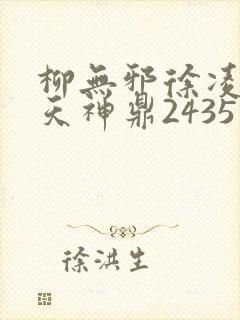 柳無邪徐凌
天神鼎2435
徐洪生